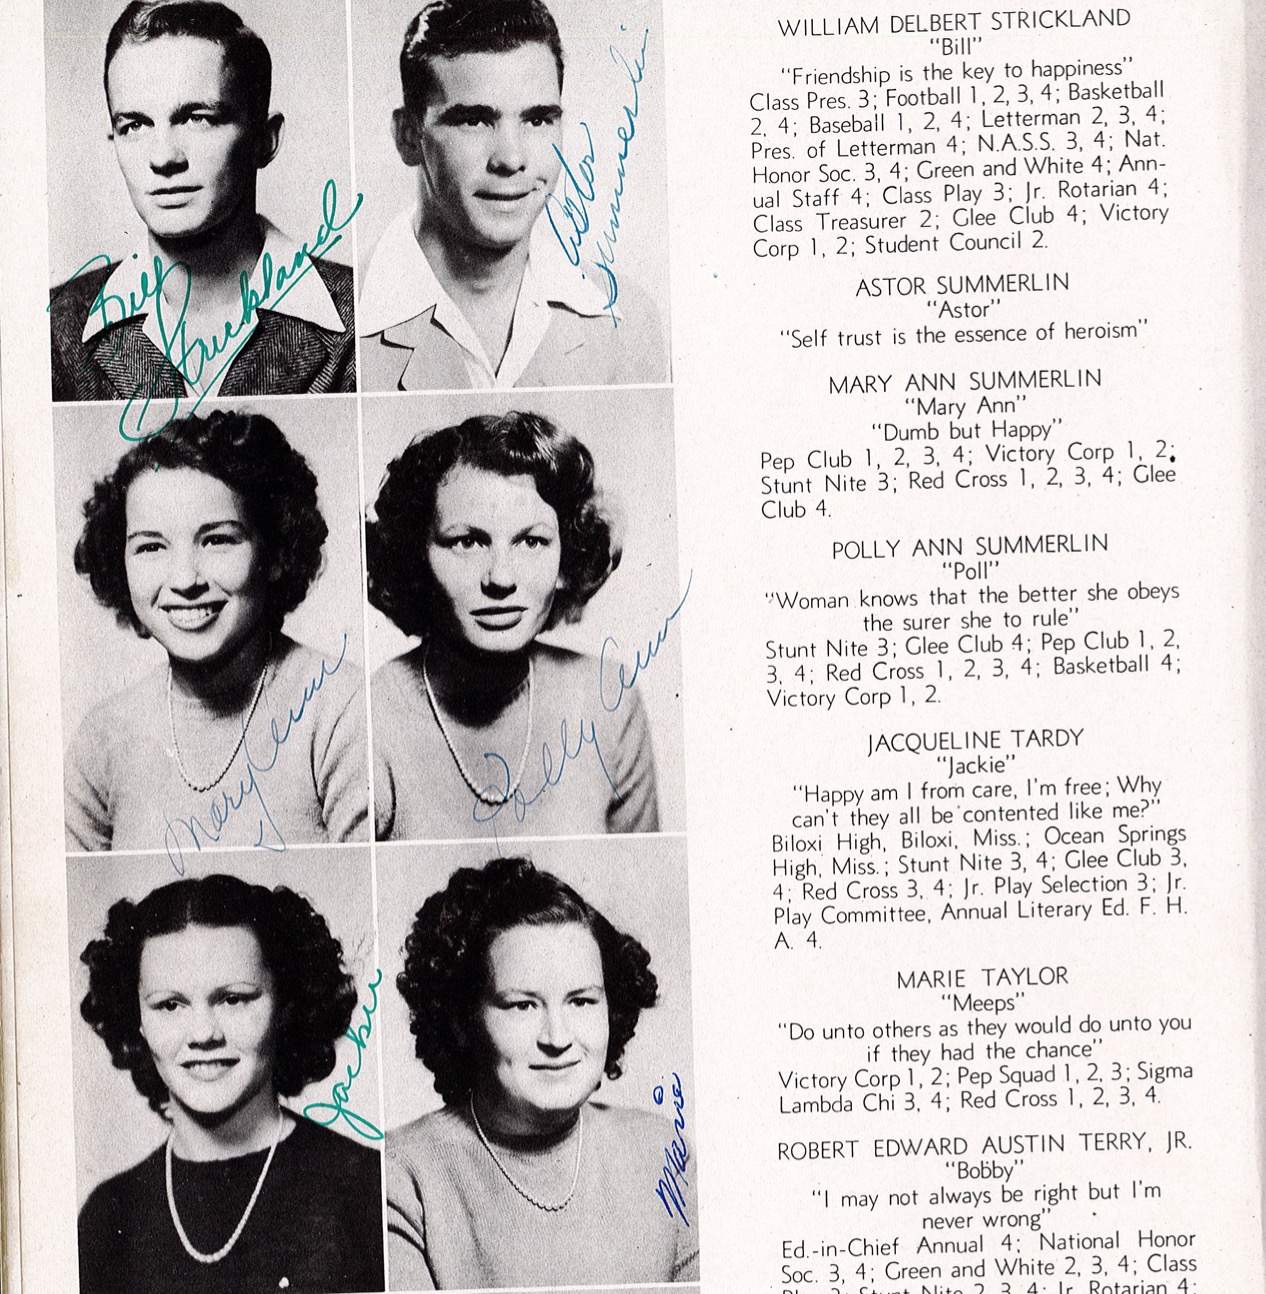 WILLIAM DELBERT STRICKLAND
“Bill”
“Friendship is the key to happiness”
Class Pres. 3; Football 1, 2, 3, 4; Basketball
2, 4; Baseball 1, 2, 4; Letterman 2, 3, 4;
Pres. of Letterman 4; N.A.S.S. 3, 4; Nat.
Honor Soc. 3, 4; Green and White 4; Ann-
ual Staff 4; Class Play 3; Jr. Rotarian 4;
Class Treasurer 2; Glee Club 4; Victory
Corp 1, 2; Student Council 2.
ASTOR SUMMERLIN
“Astor”
“Self trust is the essence of heroism”
MARY ANN SUMMERLIN
“Mary Ann”
“Dumb but Happy”
Pep Club 1, 2, 3, 4; Victory Corp 1, 2;
Stunt Nite 3; Red Cross 1, 2, 3, 4; Glee
Club 4.
POLLY ANN SUMMERLIN
“Poll”
“Woman knows that the better she obeys
the surer she to rule”
Stunt Nite 3; Glee Club 4; Pep Club 1, 2,
3, 4; Red Cross 1, 2, 3, 4; Basketball 4;
Victory Corp 1, 2.
JACQUELINE TARDY
“Jackie”
“Happy am I from care, I'm free; Why
can't they all be contented like me?”
Biloxi High, Biloxi, Miss.; Ocean Springs
High, Miss.; Stunt Nite 3, 4; Glee Club 3,
4; Red Cross 3, 4; Jr. Play Selection 3; Jr.
Play Committee, Annual Literary Ed. F. H.
A. 4.
MARIE TAYLOR
“Meeps”
“Do unto others as they would do unto you
if they had the chance”
Victory Corp 1, 2; Pep Squad 1, 2, 3; Sigma
Lambda Chi 3, 4; Red Cross 1, 2, 3, 4.
ROBERT EDWARD AUSTIN TERRY, JR.
“Bobby”
“I may not always be right but I'm
never wrong”
Ed.-in-Chief Annual 4; National Honor
Soc. 3, 4; Green and White 2, 3, 4; Class
Play 3; Stunt Nite 2, 3, 4; Jr. Rotarian 4;
Bill
Strickland
Astor
Summerlin
Mary Ann
Polly Ann
Jackie
Marie